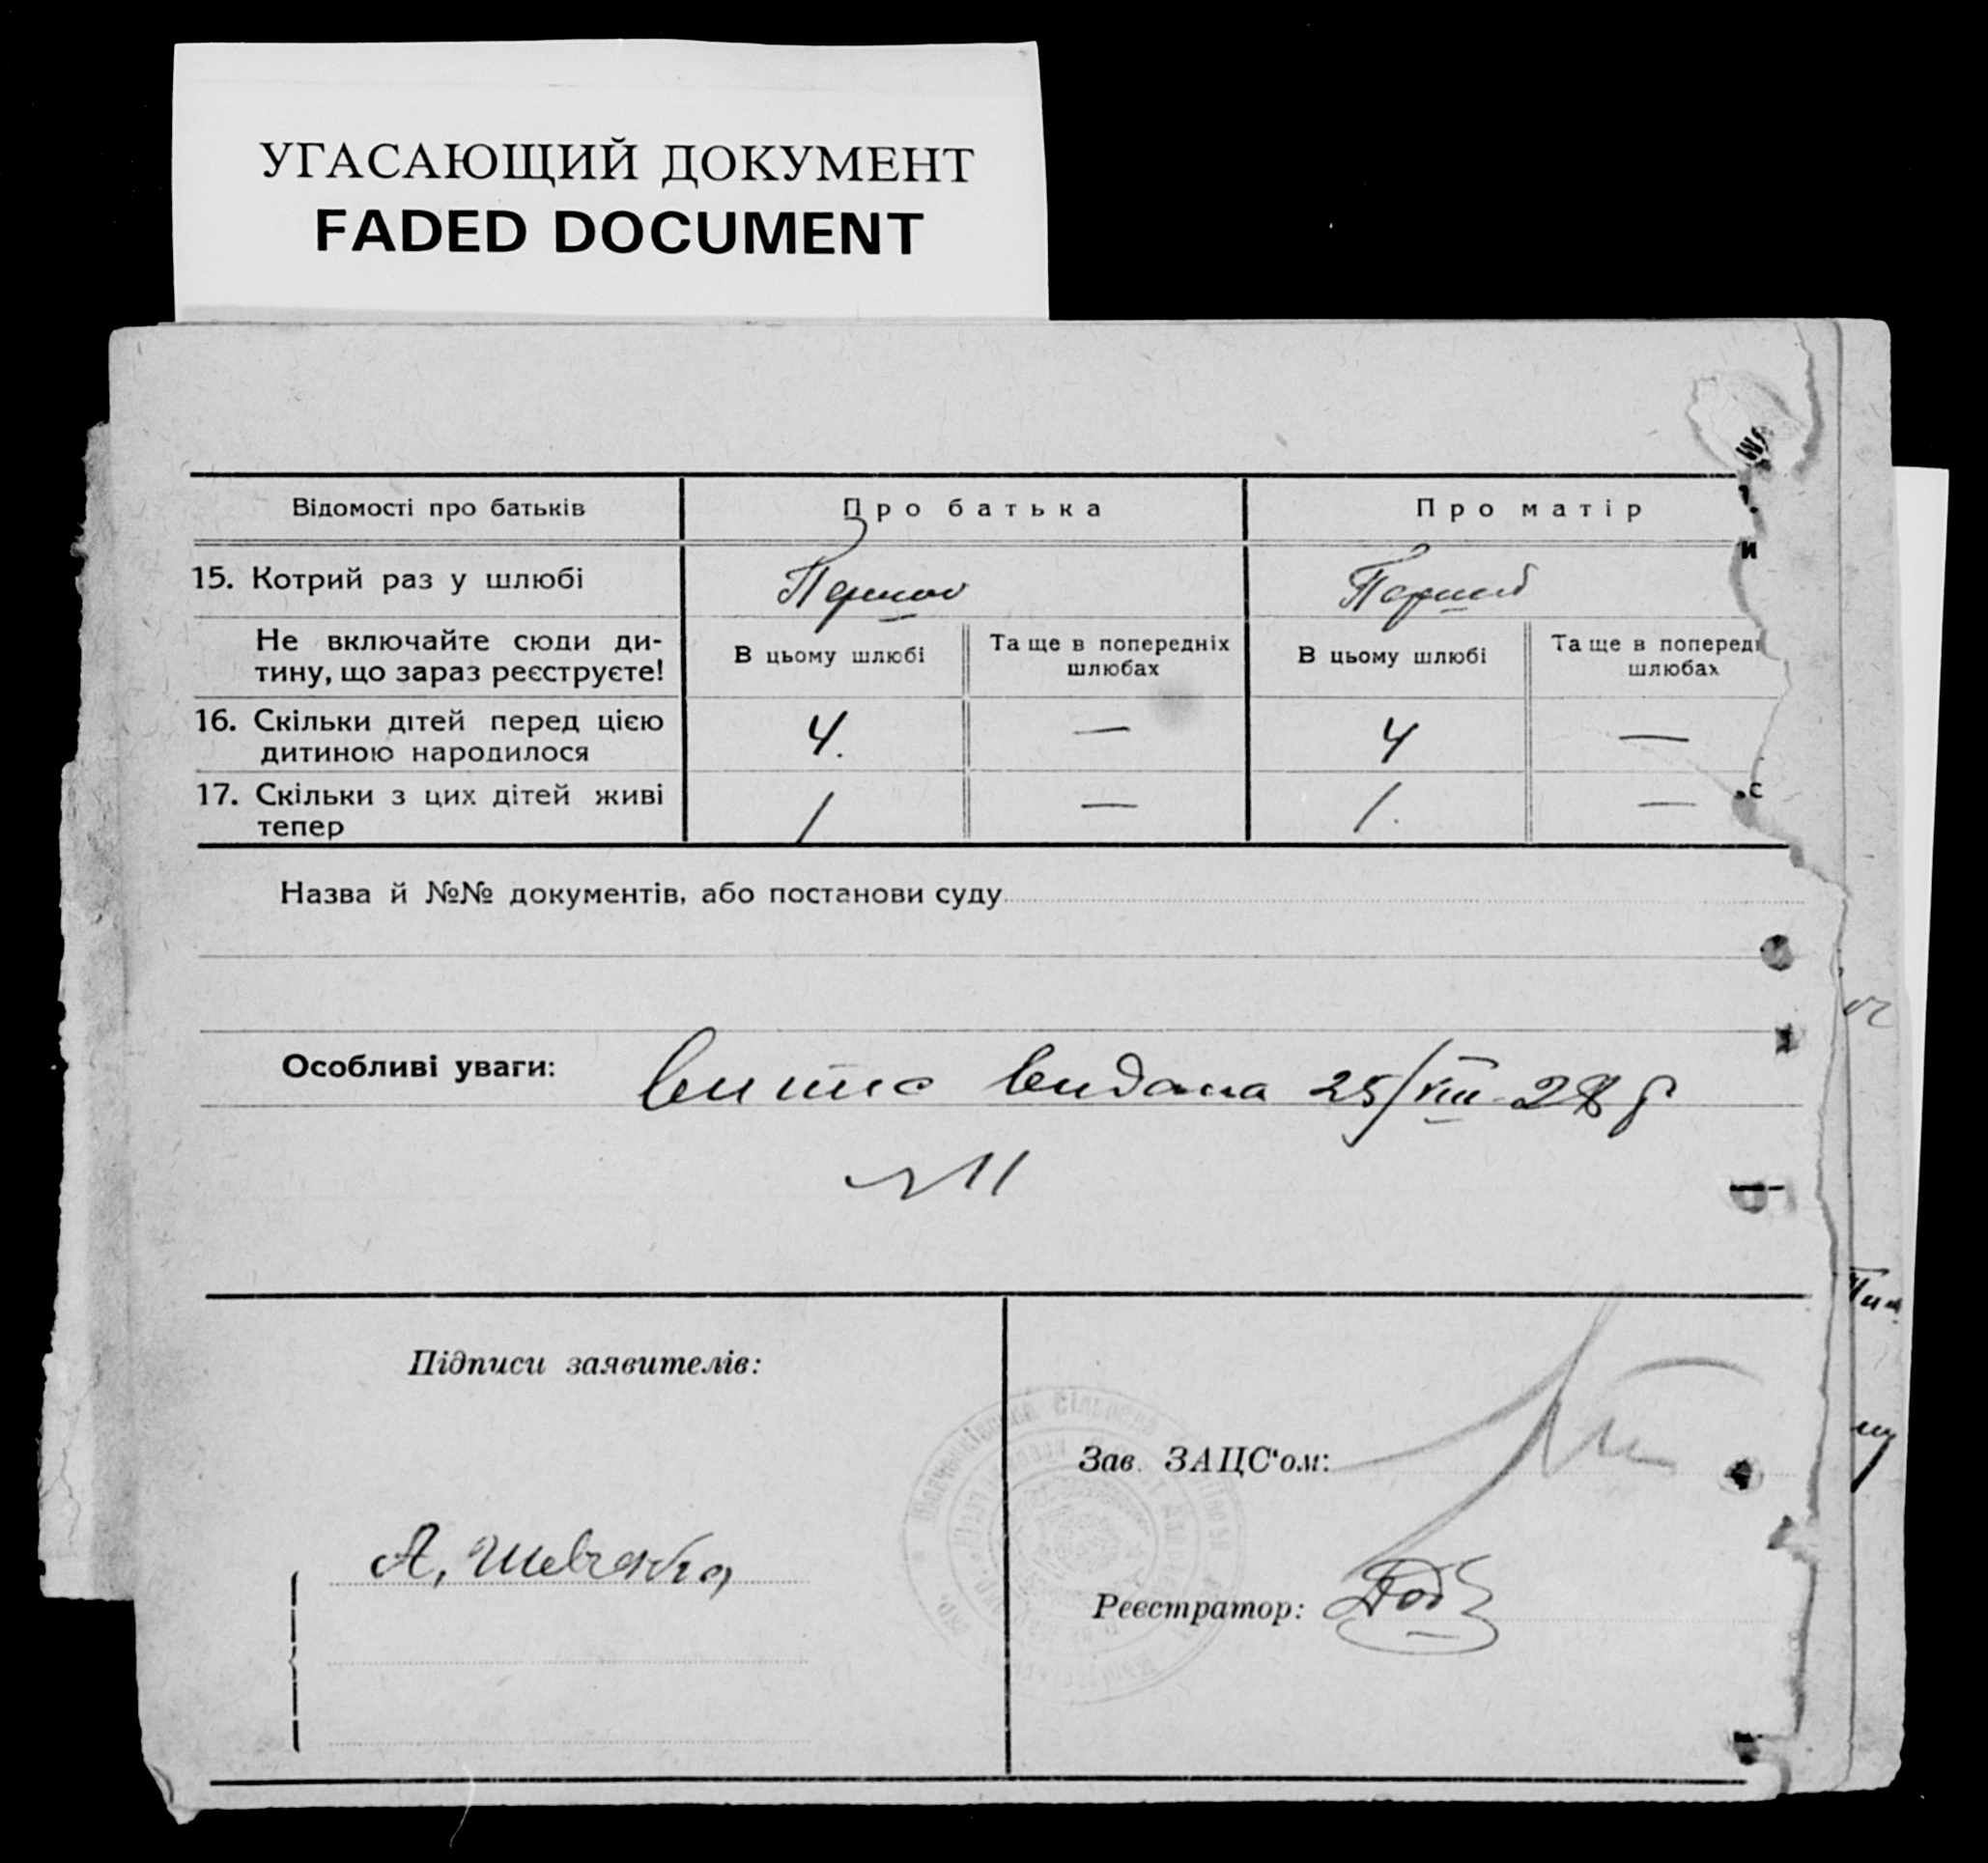 УГАСАЮЩИЙ ДОКУМЕНТ
FADED DOCUMENT
Відомості про батьків
Про батька
Про матір
15. Котрий раз у шлюбі
Перший
Перший
Не включайте сюди ди-
тину, що зараз реєструєте!
В цьому шлюбі
Та ще в попередніх
шлюбах
В цьому шлюбі
Та ще в попередн
шлюбах
16. Скільки дітей перед цією
дитиною народилося
4.
—
4
—
17. Скільки з цих дітей живі
тепер
1
—
1.
—
Назва й №№ документів, або постанови суду
Особливі уваги:
видана 25/VIII-28 р
Підписи заявителів:
Зав. ЗАЦС'ом:
А. Шевченко
Реєстратор: